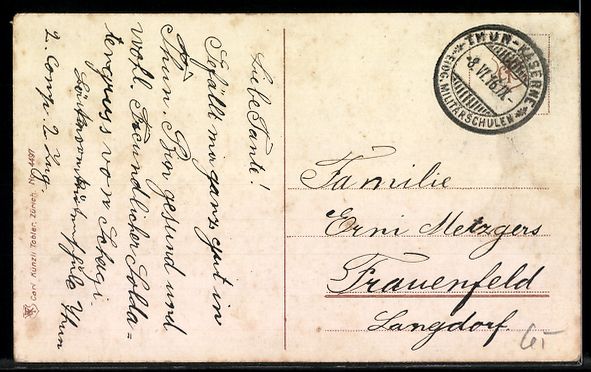 Liebe Tante!
Gefällt mir ganz gut in
Thun. Bin gesund und
wohl. Freundlicher Solda=
tengruss von Schagi
2. Comp. 2. Zug.
Thun
Carl Künzli Tobler, Zürich. No.
THUN-KASERNE
-8.VI.16.
EIDG. MILITÄRSCHULEN
Familie
Erni Metzgers
Frauenfeld
Langdorf.